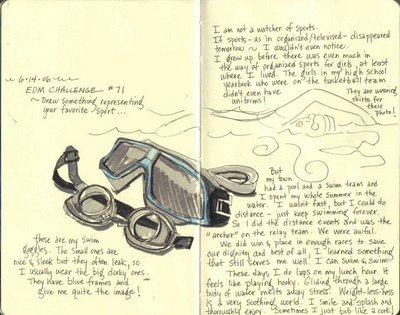 6·14·06
EDM CHALLENGE #71
~ Draw something representing
your favorite sport...
these are my swim
goggles. The small ones are
nice & sleek but they often leak, so
I usually wear the big dorky ones.
They have blue frames and
give me quite the image!
I am not a watcher of sports.
If sports - as in organized/televised - disappeared
tomorrow ~ I wouldn't even notice.
I grew up before there was even much in
the way of organized sports for girls, at least
where I lived. The girls in my high school
yearbook who were on the basketball team
didn't even have
uniforms!
They are wearing
skirts for
their
photo!
But
my town
had a pool and a swim team and
I spent my whole summer in the
water. I wasn't fast, but I could do
distance - just keep swimming forever.
So I did the distance events and was the
"anchor" on the relay team. We were awful.
We did win 2nd place in enough races to save
our dignity and best of all, I learned something
that still serves me well. I can swim & swim!
These days I do laps on my lunch hour. It
feels like playing hooky. Gliding through a large
body of water melts away stress. Weight-less-ness
is a very soothing world. I smile and splash and
thoroughly enjoy. Sometimes I just bob like a cork!